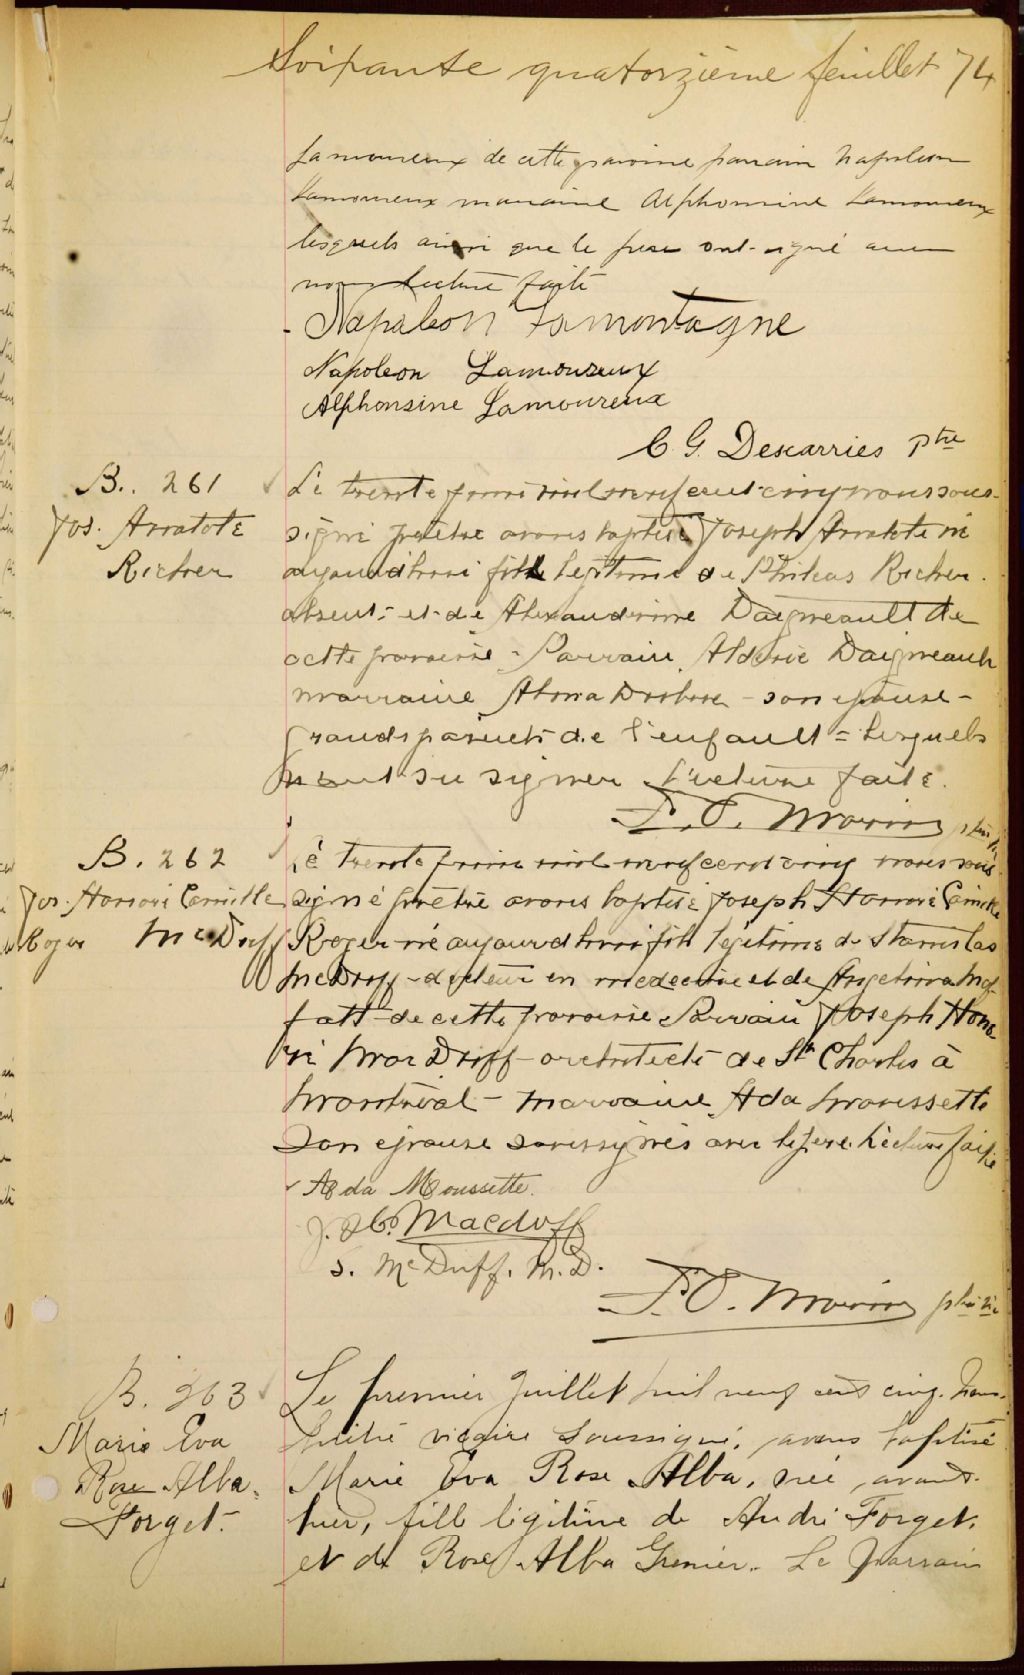 Soixante quatorzième feuillet 74
Lamoureux de cette paroisse parrain Napoleon
Lamoureux marraine Alphonsine Lamoureux
lesquels ainsi que le pere ont signé avec
nous lecture faite
Napoleon Lamontagne
Napoleon Lamoureux
Alphonsine Lamoureux
C. G. Descarries Ptre
B. 261
Jos. Anatole
Richer
Le trente juin mil neuf cent cinq nous sous-
signé prêtre avons baptisé Joseph Anatole né
aujourd'hui fils légitime de Philias Richer
absent - et de Alexandrine Daigneault de
cette paroisse - Parrain Alderic Daigneault
marraine Alma - son épouse -
Grands parents de l'enfault = lesquels
n'ont su signer Lecture faite.
F. O. Morin ptre
B. 262
Jos. Honoré Camille
Roger McDuff
Le trente juin mil neuf cent cinq nous sous
signé prêtre avons baptisé Joseph Honoré Camille
Roger né aujourd'hui fils légitime de Stanislas
McDuff - docteur en médecine et de Angelina Mof
fatt de cette paroisse Parrain Joseph Hono
ré MacDuff architecte de St Charles à
Montréal - marraine Ada Moussette
son épouse soussignés avec le pere. Lecture faite
Ada Moussette.
J. H. C. Macduff
S. McDuff. M.D.
F. O. Morin ptre
B. 263
Marie Eva
Rose Alba.
Forget.
Le premier Juillet mil neuf cent cinq. Nous.
Prêtre vicaire soussigné, avons baptisé
Marie Eva Rose Alba, née avant-
hier, fille légitime de André Forget,
et de Rose Alba Grenier. Le parrain